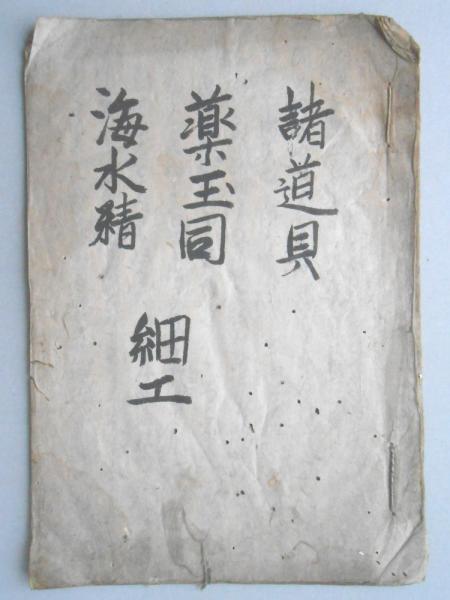 諸道具
薬玉同
海水精
細工